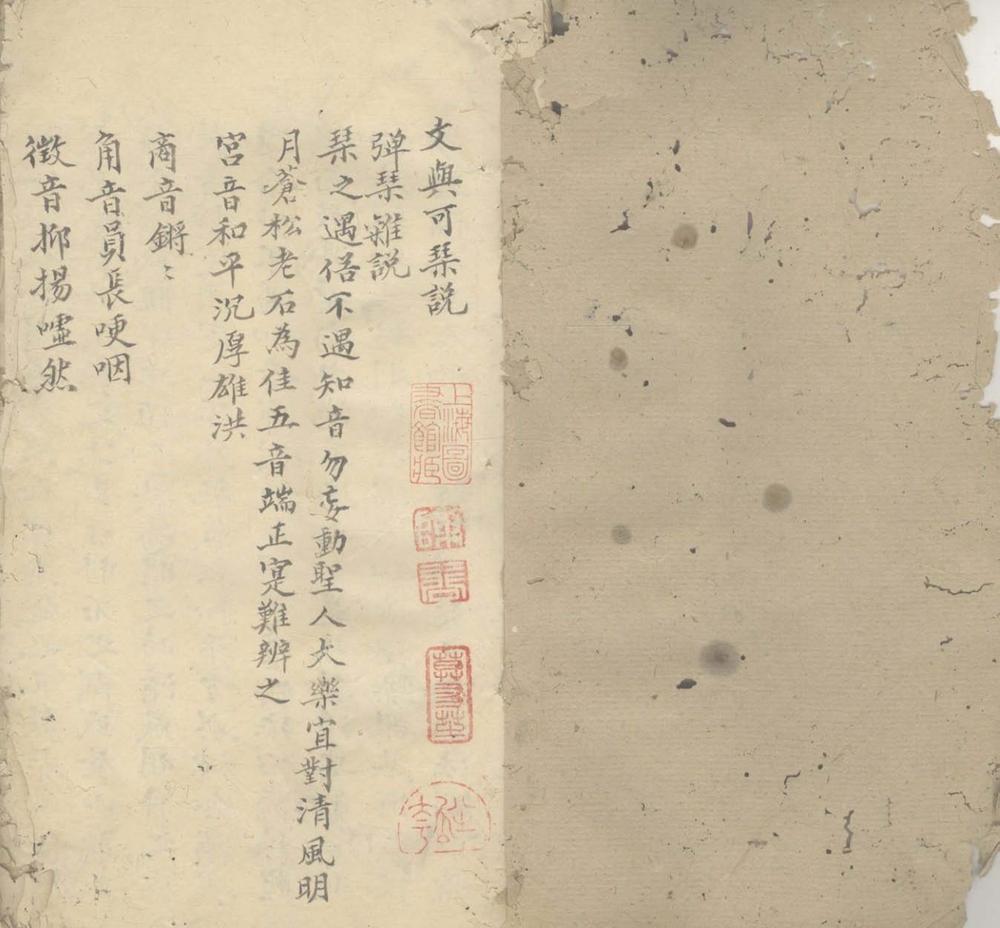 文與可琹説
弹琹雜説
琹之遇俗不遇知音勿妄動聖人大樂宜對清風明
月蒼松老石為佳五音端正寔難辨之
宮音和平沉厚雄洪
商音鏘〻
角音員長哽咽
徵音抑揚嘘然
上海圖書館藏